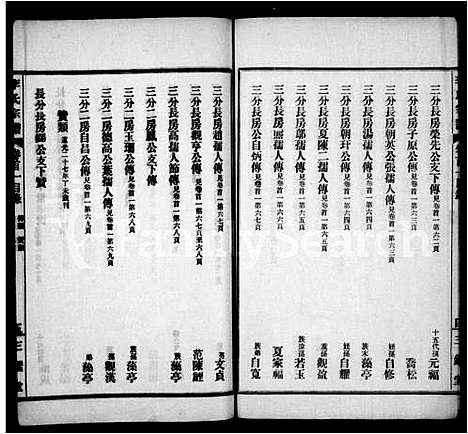 三分長房榮先公支下傳 見卷首一第六二頁 十五代孫 元福
三分長房子原公傳 見卷首一第六三頁 喬松
三分長房朝英公張孺人傳 見卷首一第六三頁 姪孫 自修
三分長房湯孺人傳 見卷首一第六四頁 族末 藻亭
三分長房朝玕公傳 見卷首一第六四頁 姪孫 自耀
三分長房夏陳二孺人傳 見卷首一第六五頁 族孫 觀盈
三分長房熙孺人傳 見卷首一第六六頁 若玉
夏家福
三分長房公自炳傳 見卷首一第六七頁 族弟 自寬
三分長房趙孺人傳 見卷首一第六七頁 文貞
三分長房觀亨公傳 見卷首一第六七頁至六八頁 范陳經
三分長房高孺人節傳 見卷首一第六八頁 藻亭
三分二房鳳公支下傳
三分二房玉瓊公傳 見卷首一第六八頁 族孫 藻亭
三分二房德高公葉孺人傳 見卷首一第六九頁 觀漢
三分二房自昌公傳 見卷首一第六九頁 弟 藻亭
贊類 道光二十七年丁未歲刊
長分長房錦公支下贊
FamilySearch